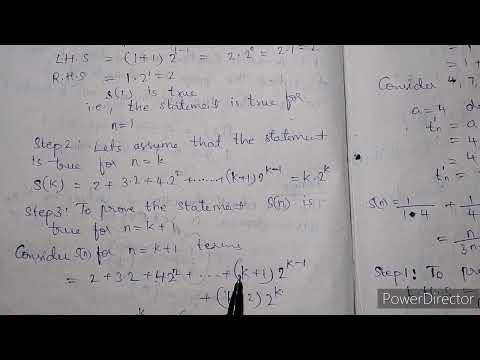 L.H.S = (1+1) 2^{1-1} = 2·2^0 = 2·1 = 2
R.H.S = 1·2^1 = 2
S(1) is true
i.e., the statement is true for
n=1
Step 2: Lets assume that the statement
is true for n=k
S(K) = 2 + 3·2 + 4·2^2 + ...... + (k+1) 2^{k-1} = k·2^k
Step 3: To prove the statement S(n) is
true for n=k+1
Consider S(n) for n=k+1 terms
= 2 + 3·2 + 4·2^2 + ..... + (k+1) 2^{k-1}
+ 2) 2^k
Consider
4, 7,
a=4
t'n =
= 4
= 4
t'n =
S(n) = 1/1·4 + 1/4
= n/3n
Step 1: To
PowerDirector